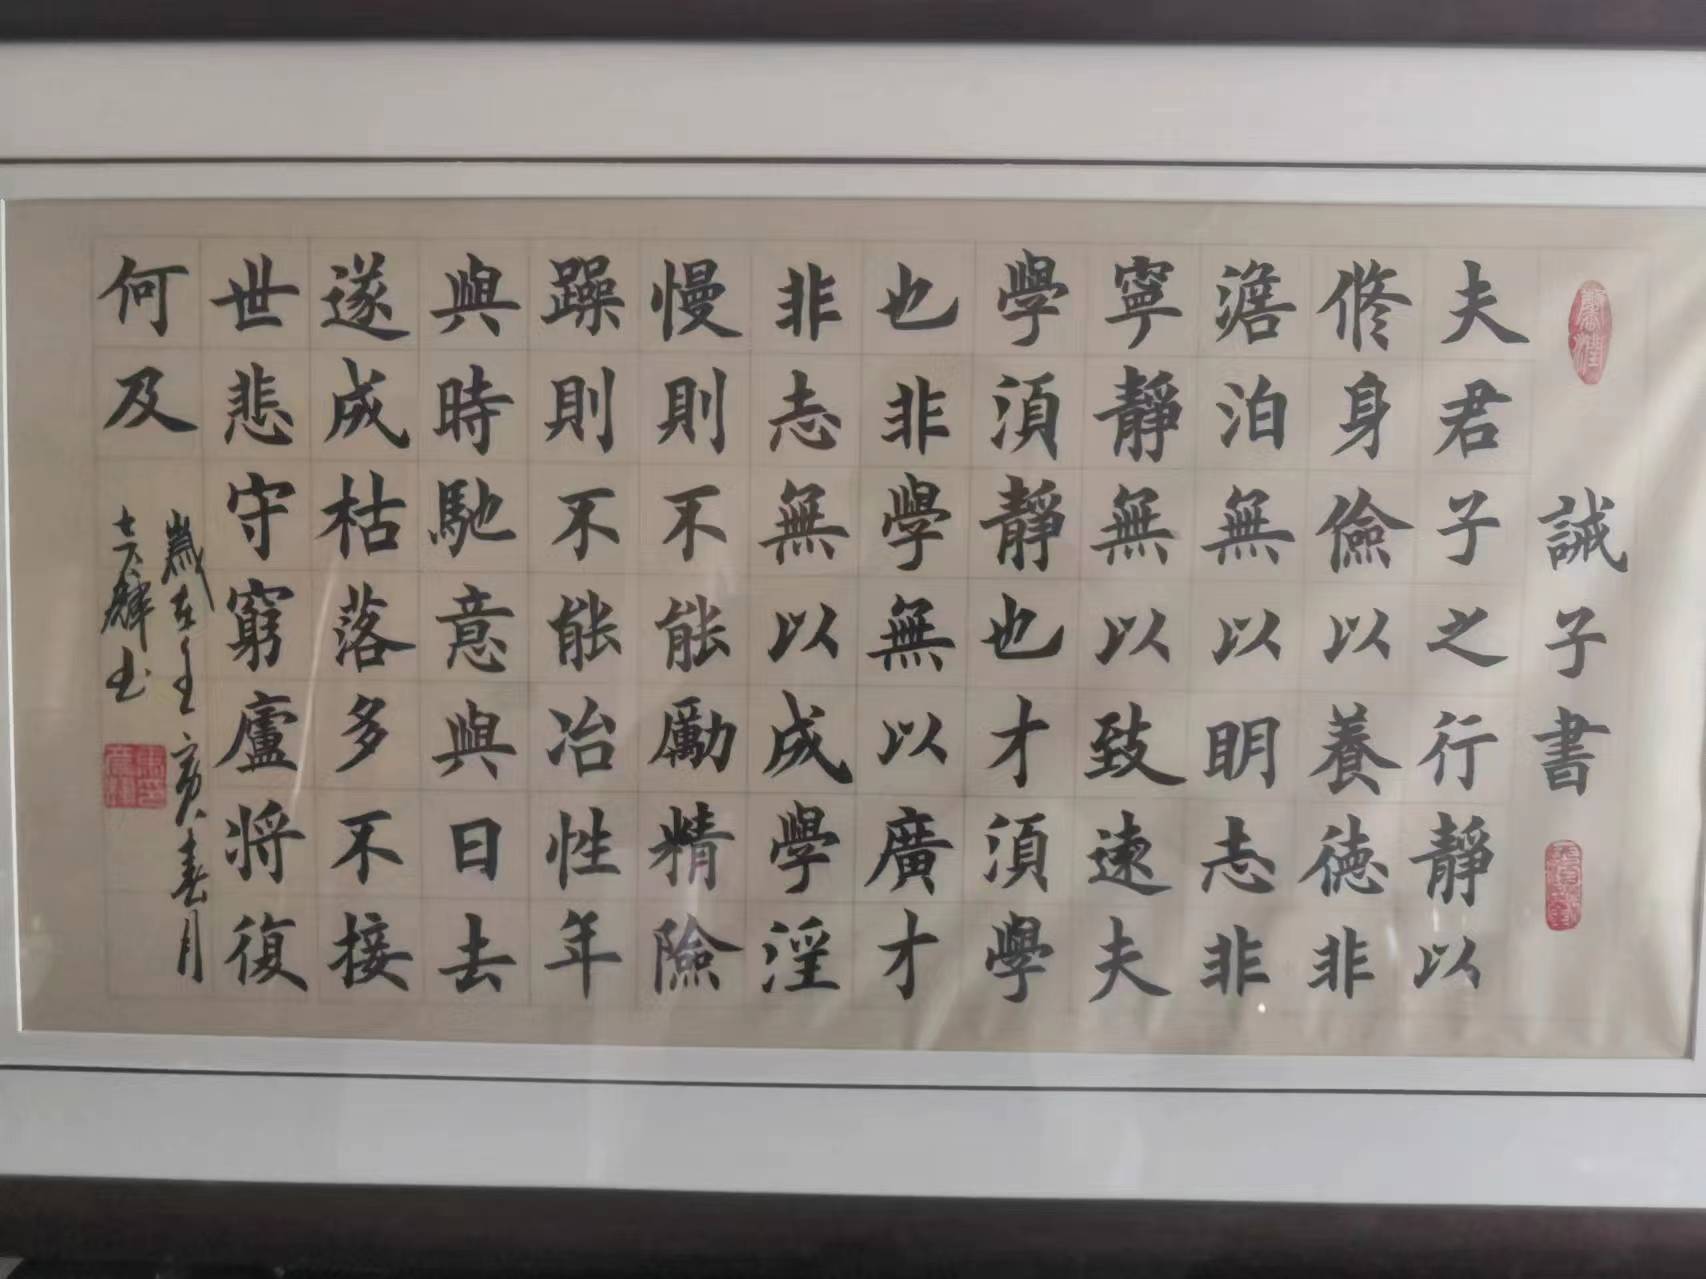 誡子書
夫君子之行靜以
修身儉以養德非
澹泊無以明志非
寧靜無以致遠夫
學須靜也才須學
也非學無以廣才
非志無以成學淫
慢則不能勵精險
躁則不能冶性年
與時馳意與日去
遂成枯落多不接
世悲守窮廬將復
何及
歲在己亥春月